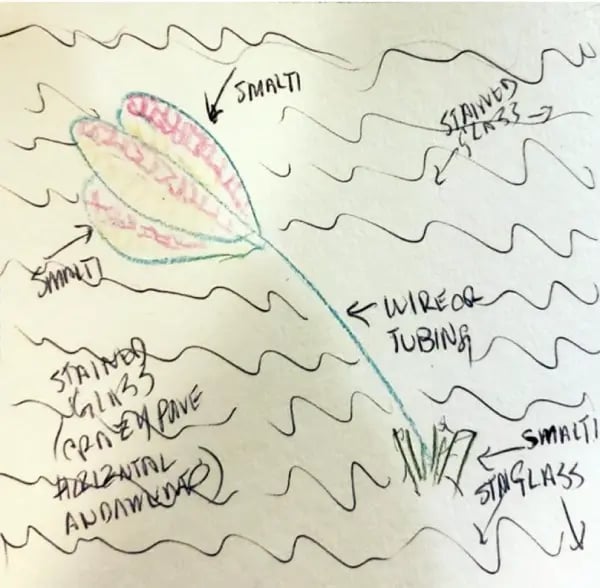 SMALTI
STAINED
GLASS
SMALTI
WIRE OR
TUBING
STAINED
GLASS
(CRAZY PAVE
HORIZONTAL
SMALTI
STNGLASS